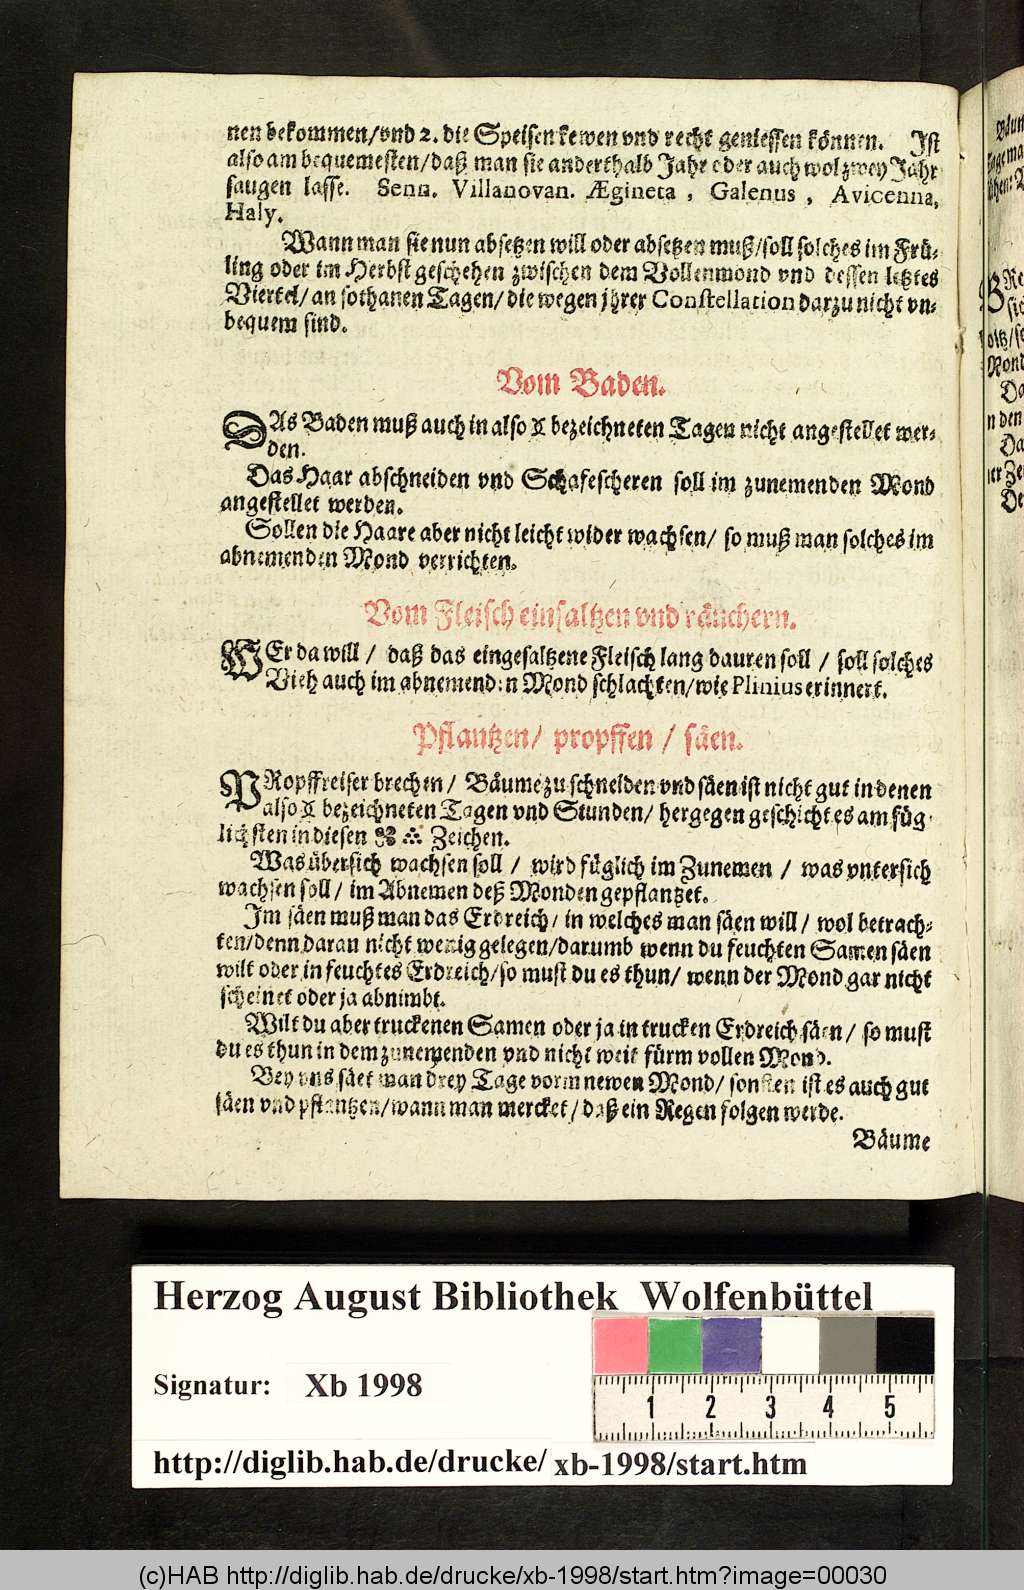 nen bekommen/vnd 2. die Speisen kewen vnd recht geniessen können. Ist
also am bequemesten/daß man sie anderthalb Jahr oder auch wol zwey Jahr
saugen lasse. Senn. Villanovan. Ægineta, Galenus, Avicenna,
Haly.
Wann man sie nun absetzen will oder absetzen muß/soll solches im Frü-
ling oder im Herbst geschehen zwischen dem Vollenmond vnd dessen letztes
Viertel/an sothanen Tagen/die wegen jhrer Constellation darzu nicht vn-
bequem sind.
Vom Baden.
DAs Baden muß auch in also bezeichneten Tagen nicht angestellet wer-
den.
Das Haar abschneiden vnd Schafescheren soll im zunemenden Mond
angestellet werden.
Sollen die Haare aber nicht leicht wider wachsen/ so muß man solches im
abnemenden Mond verrichten.
Vom Fleisch einsaltzen vnd räuchern.
WEr da will / daß das eingesaltzene Fleisch lang dauren soll / soll solches
Vieh auch im abnemenden Mond schlachten/wie Plinius erinnert.
Pflantzen/ propffen / säen.
PRopffreiser brechen / Bäume zu schneiden vnd säen ist nicht gut in denen
also bezeichneten Tagen vnd Stunden/ hergegen geschicht es am füg-
lichsten in diesen Zeichen.
Was übersich wachsen soll / wird füglich im Zunemen / was vntersich
wachsen soll / im Abnemen deß Monden gepflantzet.
Im säen muß man das Erdreich/ in welches man säen will / wol betrach-
ten/denn daran nicht wenig gelegen/darumb wenn du feuchten Samen säen
wilt oder in feuchtes Erdreich/so must du es thun/ wenn der Mond gar nicht
scheinet oder ja abnimbt.
Wilt du aber truckenen Samen oder ja in trucken Erdreich säen / so must
du es thun in dem zunemenden vnd nicht weit fürm vollen Mond.
Bey vns säet man drey Tage vorm newen Mond/ sonsten ist es auch gut
säen vnd pflantzen/wann man mercket/daß ein Regen folgen werde.
Bäume
Herzog August Bibliothek Wolfenbüttel
Signatur: Xb 1998
1 2 3 4 5
http://diglib.hab.de/drucke/ xb-1998/start.htm
(c)HAB http://diglib.hab.de/drucke/xb-1998/start.htm?image=00030